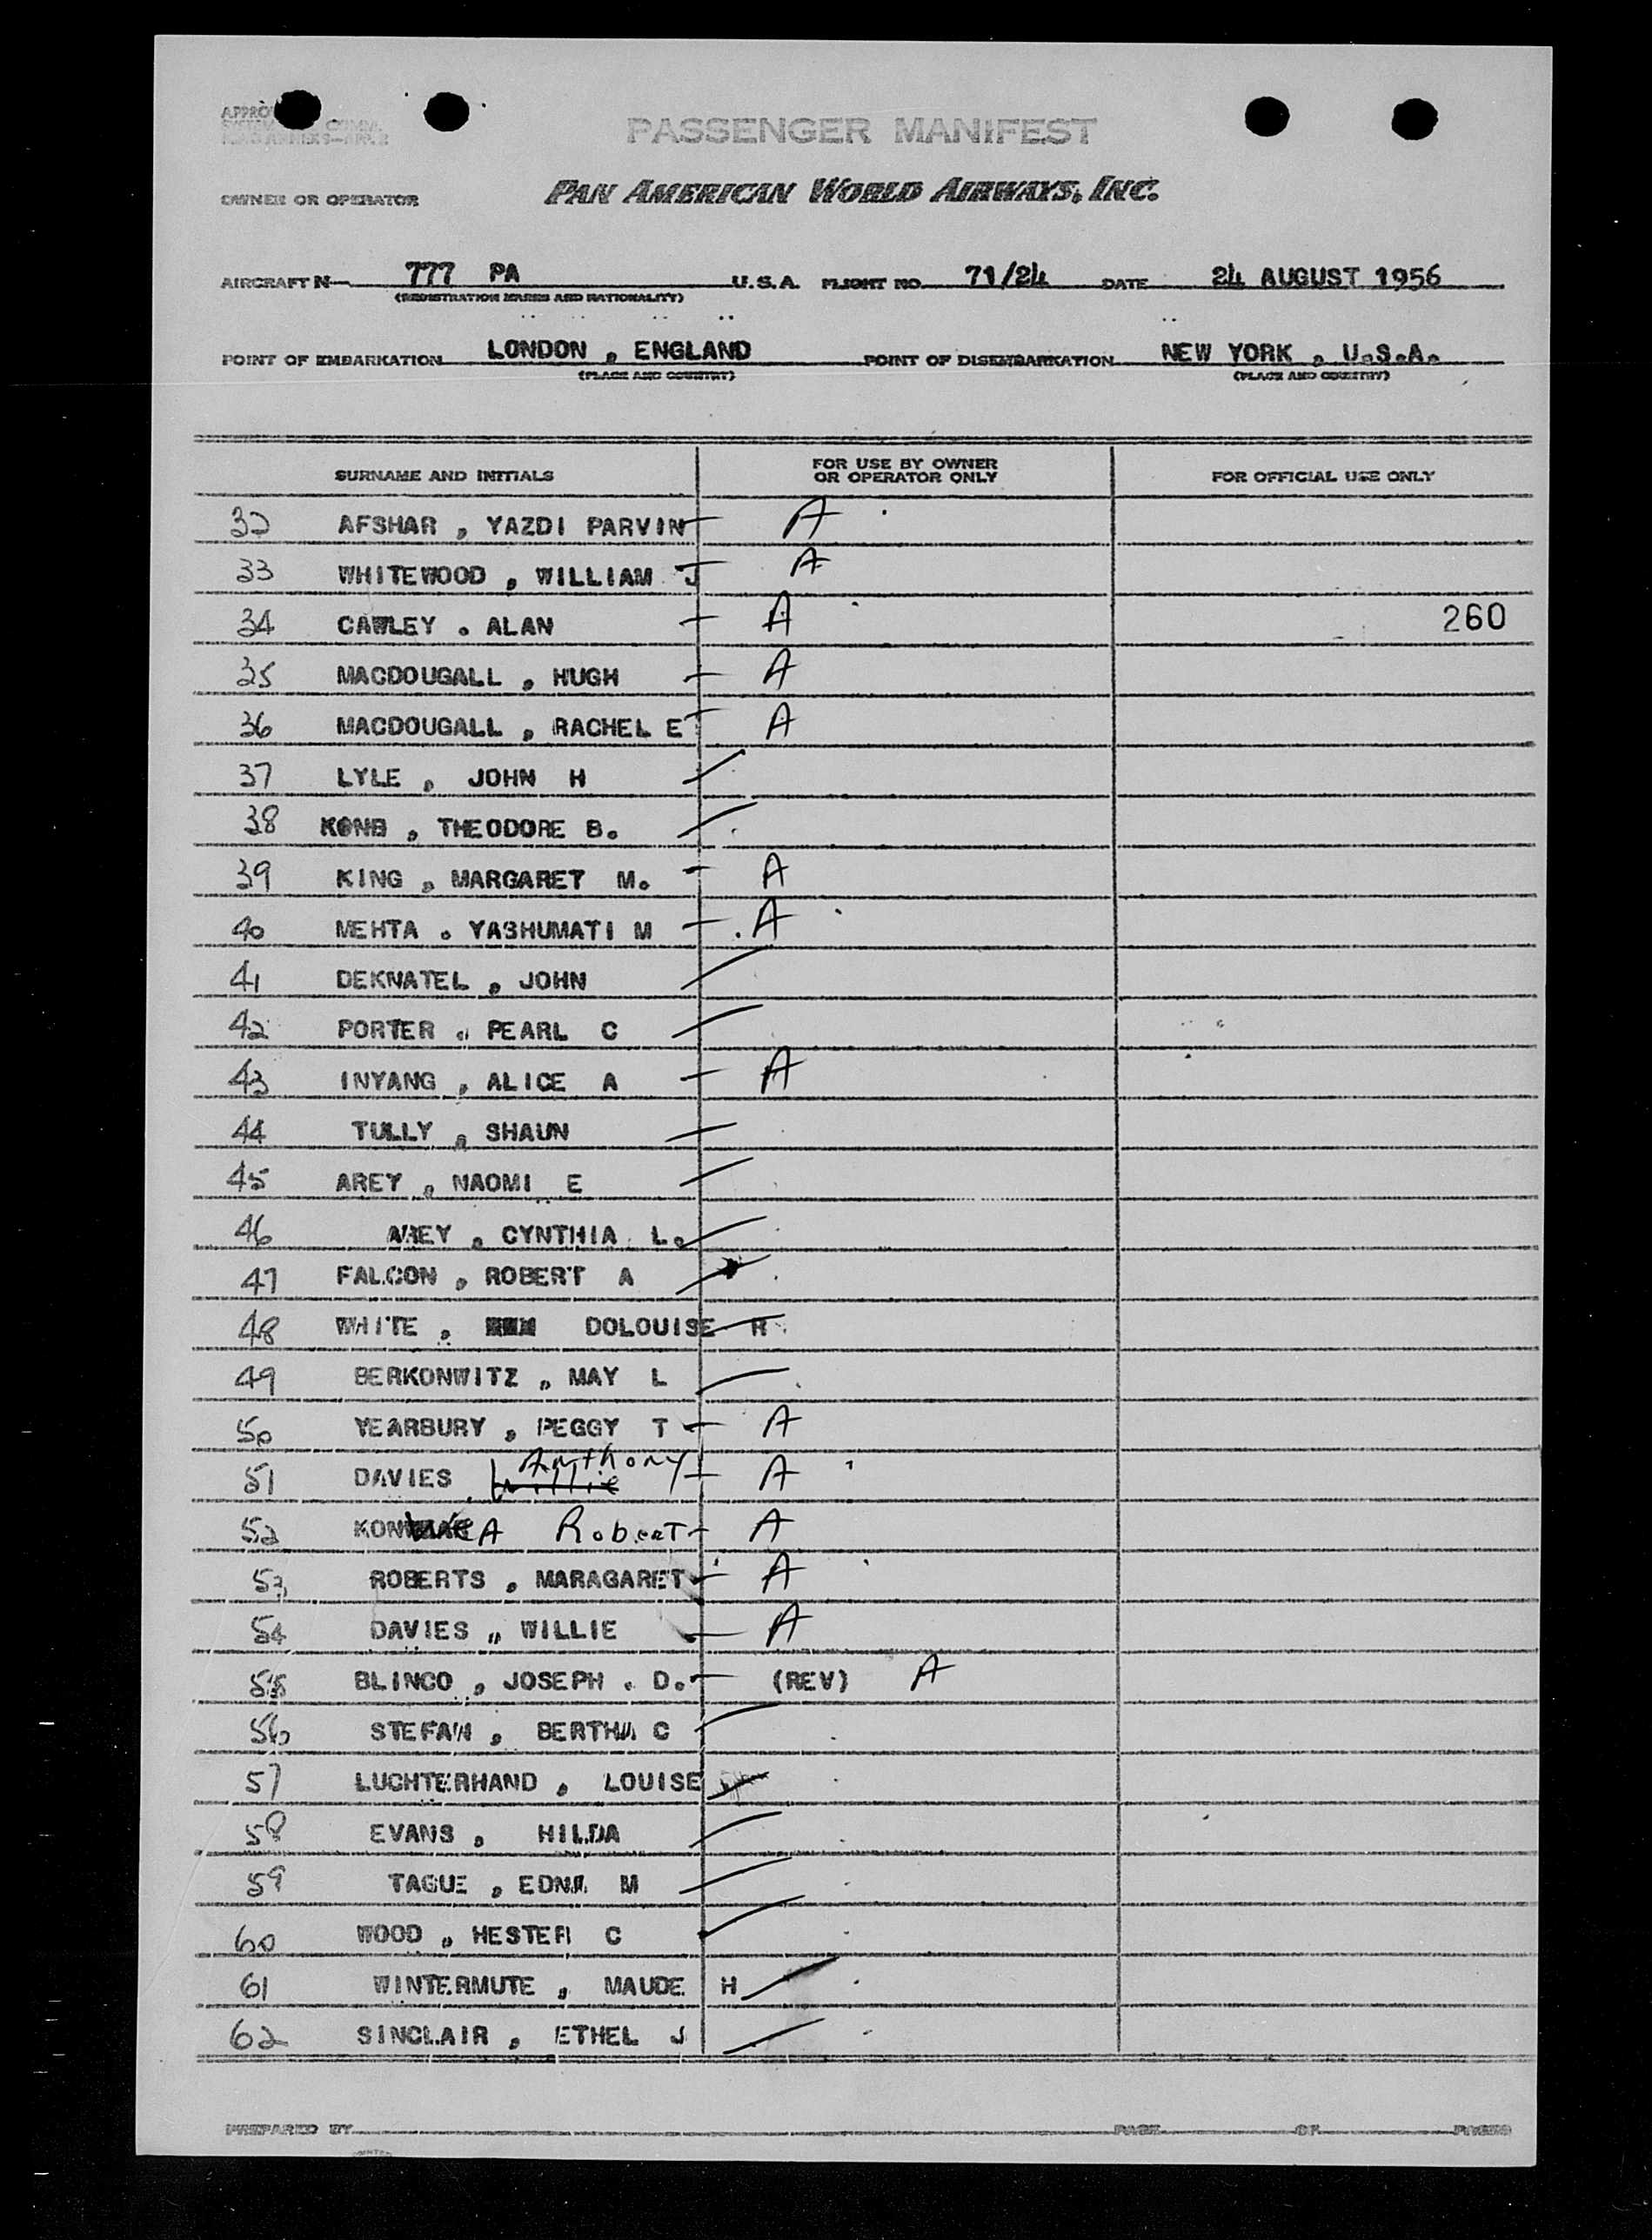 PASSENGER MANIFEST
OWNER OR OPERATOR PAN AMERICAN WORLD AIRWAYS, INC.
AIRCRAFT N 777 PA U.S.A. FLIGHT NO. 71/24 DATE 24 AUGUST 1956
(REGISTRATION MARKS AND NATIONALITY)
POINT OF EMBARKATION LONDON , ENGLAND POINT OF DISEMBARKATION NEW YORK , U.S.A.
(PLACE AND COUNTRY) (PLACE AND COUNTRY)
SURNAME AND INITIALS FOR USE BY OWNER OR OPERATOR ONLY FOR OFFICIAL USE ONLY
32 AFSHAR , YAZDI PARVIN A
33 WHITEWOOD , WILLIAM J A
34 CAWLEY . ALAN A 260
35 MACDOUGALL , HUGH A
36 MACDOUGALL , RACHEL E A
37 LYLE , JOHN H
38 , THEODORE B.
39 KING , MARGARET M. A
40 MEHTA . YASHUMATI M A
41 DEKNATEL , JOHN
42 PORTER , PEARL C
43 INYANG , ALICE A A
44 TULLY , SHAUN
45 AREY , NAOMI E
46 AREY , CYNTHIA L.
47 FALCON , ROBERT A
48 WHITE , DOLOUISE R
49 BERKONWITZ , MAY L
50 YEARBURY , PEGGY T A
51 DAVIES , Willie Anthony A
52 Robert A
53 ROBERTS , MARAGARET A
54 DAVIES ,, WILLIE A
55 BLINCO , JOSEPH . D. (REV) A
56 STEFAN , BERTHA C
57 LUCHTERHAND , LOUISE
58 EVANS , HILDA
59 TAGUE , EDNA M
60 WOOD , HESTER C
61 WINTERMUTE , MAUDE H
62 SINCLAIR , ETHEL J
PREPARED BY PAGE OF PAGES